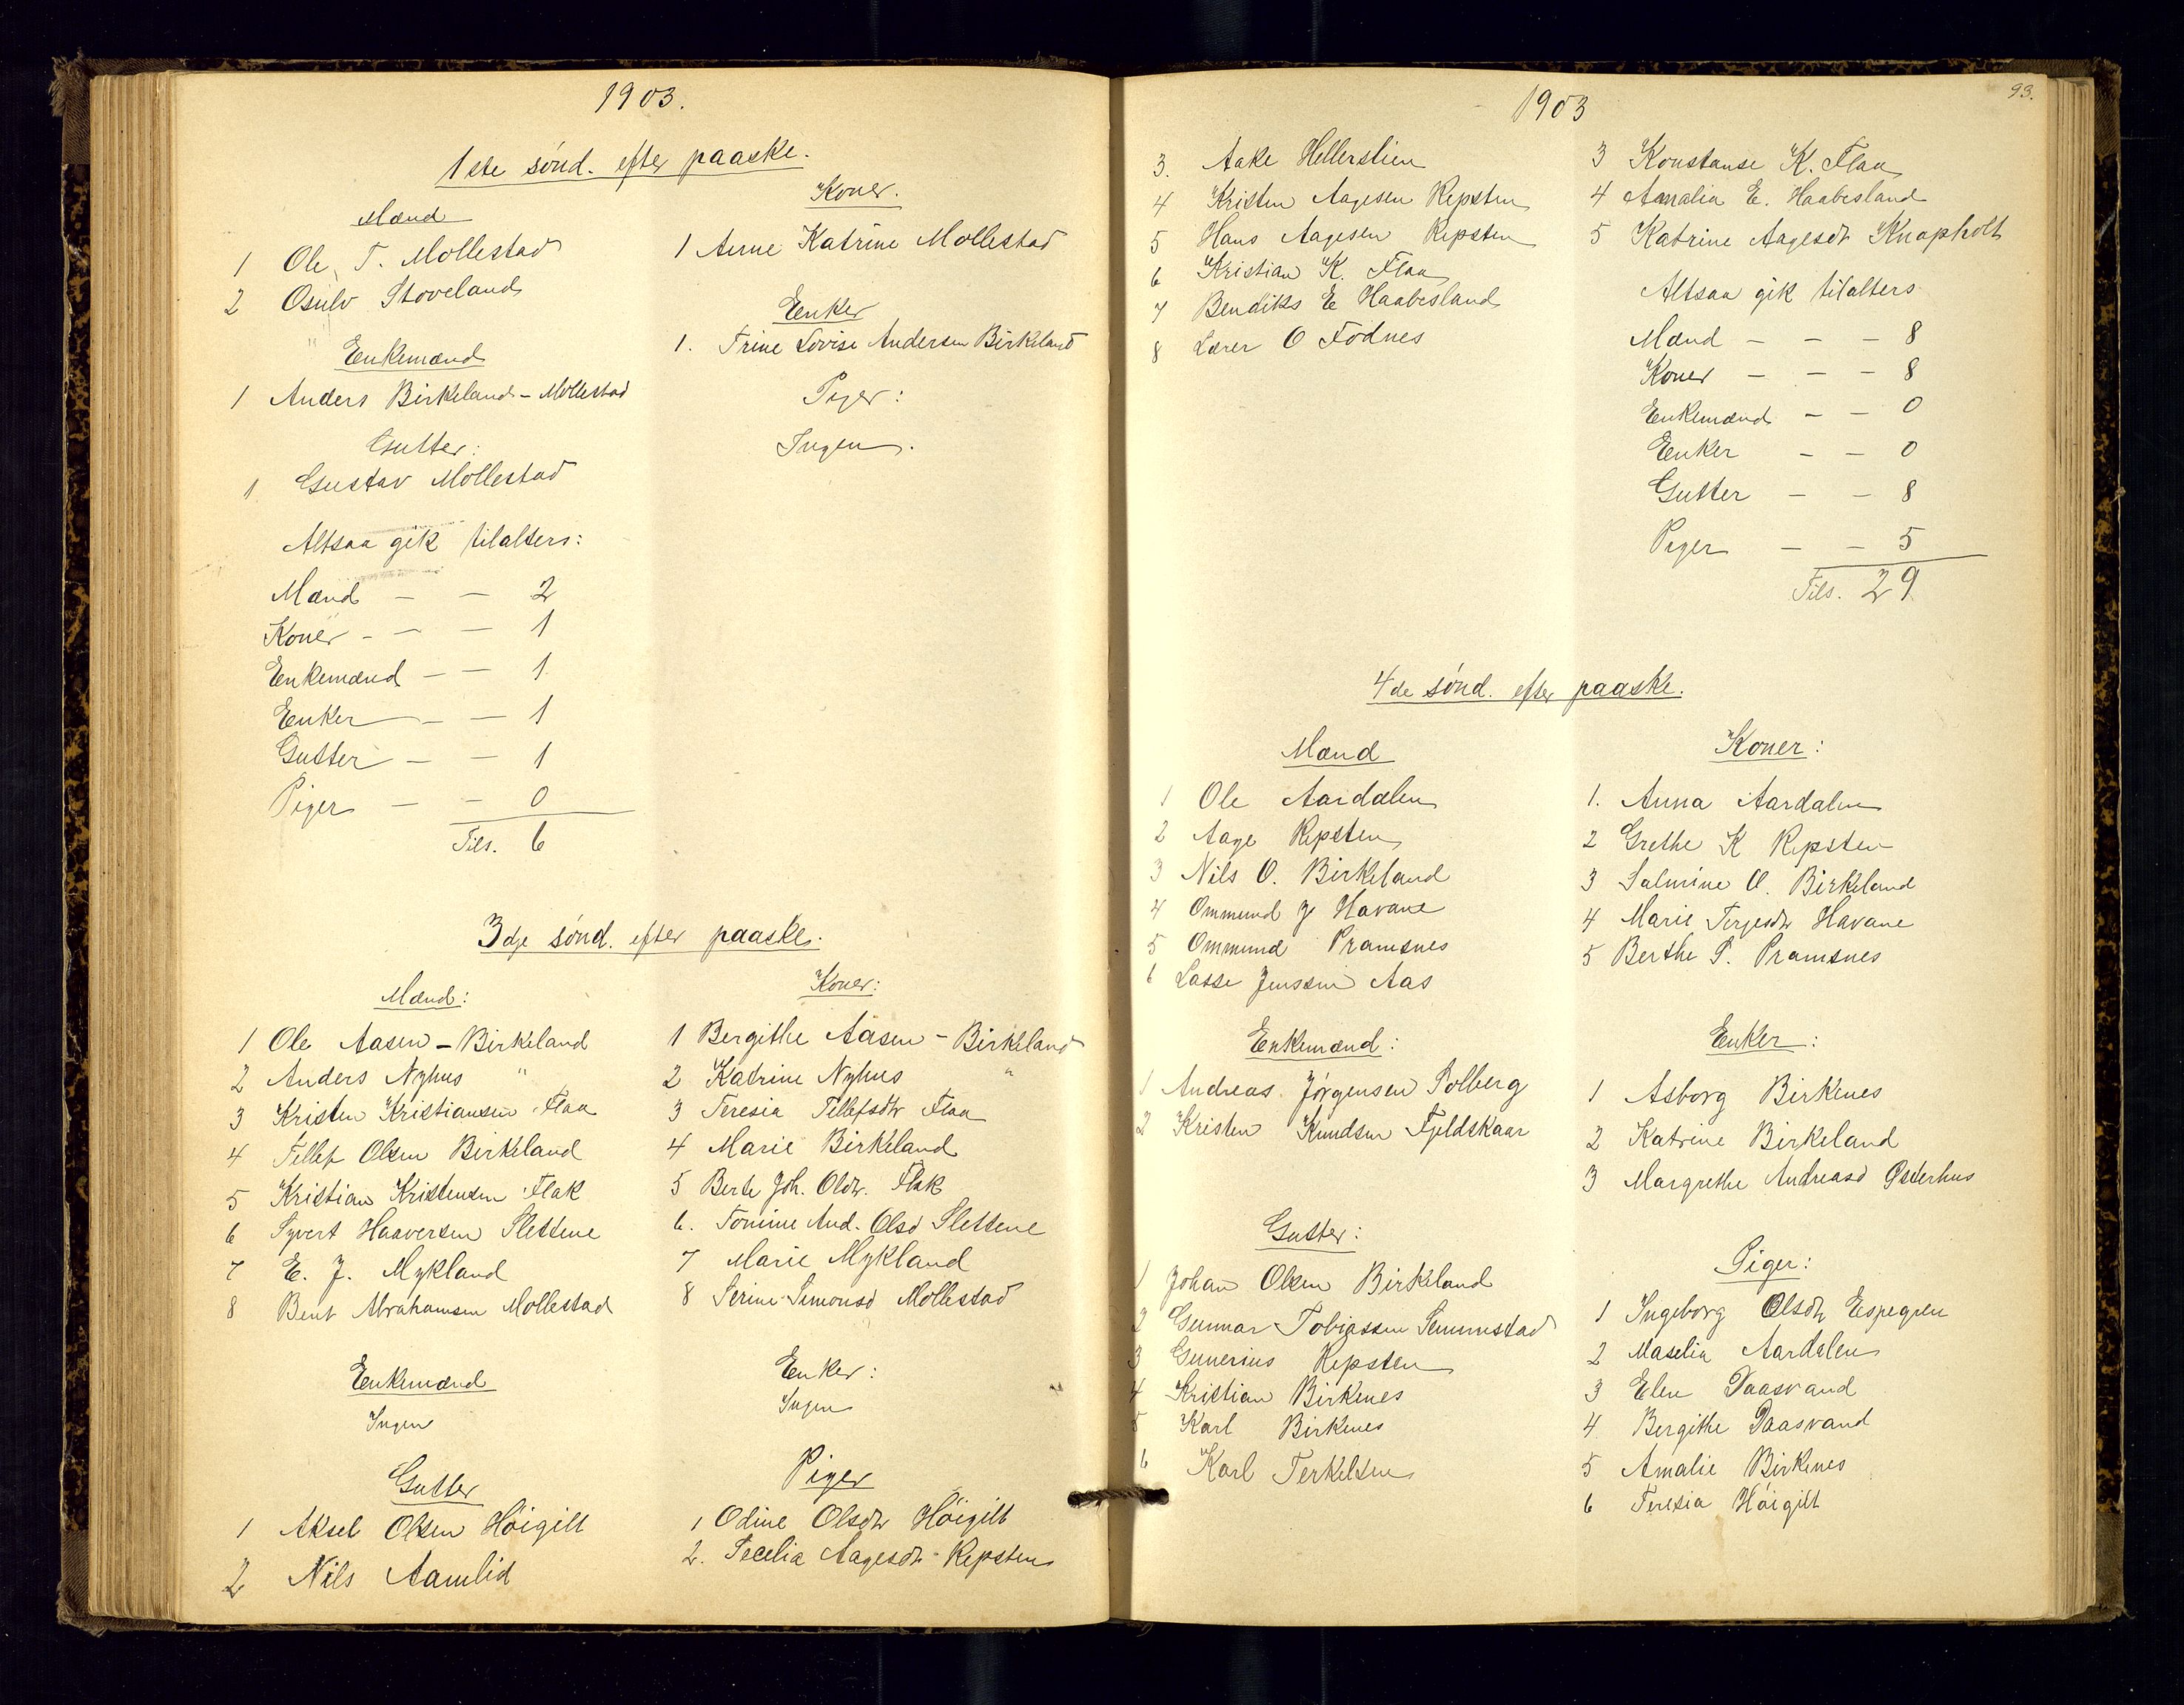 1903.
1ste sönd. efter paaske.
Mænd
1 Ole T. Mollestad
2 Osulv Stoveland
Enkemænd
1 Anders Birkeland - Mollestad
Gutter:
1 Gustav Mollestad
Altsaa gik tilalters:
Mænd — — 2
Koner - — — 1
Enkemænd — — 1
Enker — — 1
Gutter — — 1
Piger — — 0
Tils. 6
Koner.
1 Anne Katrine Mollestad
Enker
1. Trine Lovise Andersen Birkeland
Piger:
Ingen.
3dje sönd. efter paaske.
Mænd:
1 Ole Aasen - Birkeland
2 Anders Nyhus "
3 Kristen Kristiansen Flaa
4 Tellef Olsen Birkeland
5 Kristian Kristensen Flak
6 Syvert Haaversen Slettene
7 E. J. Mykland
8 Bent Abrahamsen Mollestad
Enkemænd
Ingen
Gutter
1 Aksel Olsen Höigilt
2 Nils Aamlid
Koner:
1 Bergithe Aasen - Birkeland
2 Katrine Nyhus "
3 Teresia Tellefsdtr Flaa
4 Marie Birkeland
5 Berte Joh. Oldtr. Flak
6. Tomine And. Olsd Slettene
7 Marie Mykland
8 Serine Simonsd Mollestad
Enker:
Ingen
Piger
1 Odine Olsdtr Höigilt
2. Secelia Aagesdtr Repsten
93.
1903
3. Aake Hellerslien
4 Kristen Aagesen Repsten
5 Hans Aagesen Repsten
6 Kristian K. Flaa
7 Bendiks E Haabesland
8 Lærer O Fodnes
3 Konstanse K. Flaa
4 Amalia E. Haabesland
5 Katrine Aagesdtr Knapholt
Altsaa gik tilalters
Mænd — — — 8
Koner — — — 8
Enkemænd — — 0
Enker — — 0
Gutter — — 8
Piger — — 5
Tils. 29
4de sönd. efter paaske.
Mænd
1 Ole Aardalen
2 Aage Repsten
3 Nils O. Birkeland
4 Ommund J Havane
5 Ommund Pramsnes
6 Lasse Jenssen Aas
Enkemænd:
1 Andreas Jörgensen Solberg
2 Kristen Knudsen Fjeldskaar
Gutter:
1 Johan Olsen Birkeland
2 Gunnar Tobiassen Senumstad
3 Gunerius Repsten
4 Kristian Birkenes
5 Karl Birkenes
6 Karl Terkelsen
Koner:
1. Anna Aardalen
2 Grethe K Repsten
3 Salmine O. Birkeland
4 Marie Terjesdtr Havane
5 Berthe P. Pramsnes
Enker:
1 Asborg Birkenes
2 Katrine Birkeland
3 Margrethe Andreasd Østerhus
Piger:
1 Ingeborg Olsdtr Espegren
2 Maselia Aardalen
3 Elen Daasvand
4 Bergithe Daasvand
5 Amalie Birkenes
6 Teresia Höigilt